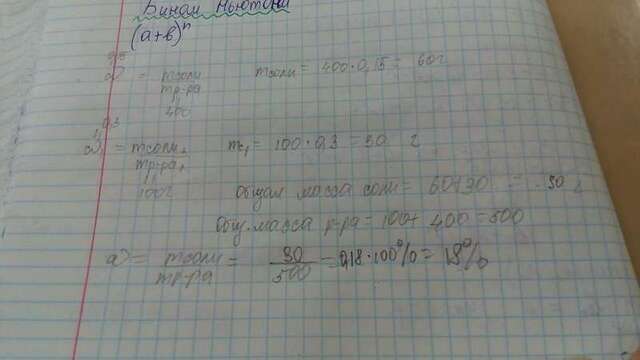 Бином Ньютона
(a+b)ⁿ
ω = mсоли / mр-ра mсоли = 400·0,15 = 60г
400
0,3
ω₁ = mсоли₁ / mр-ра₁ m₁ = 100·0,3 = 30 г
100г Общая масса соли = 60+30 = 90 г
Общ. масса р-ра = 100+400=500
ω = mсоли / mр-ра = 90 / 500 = 0,18·100% = 18%